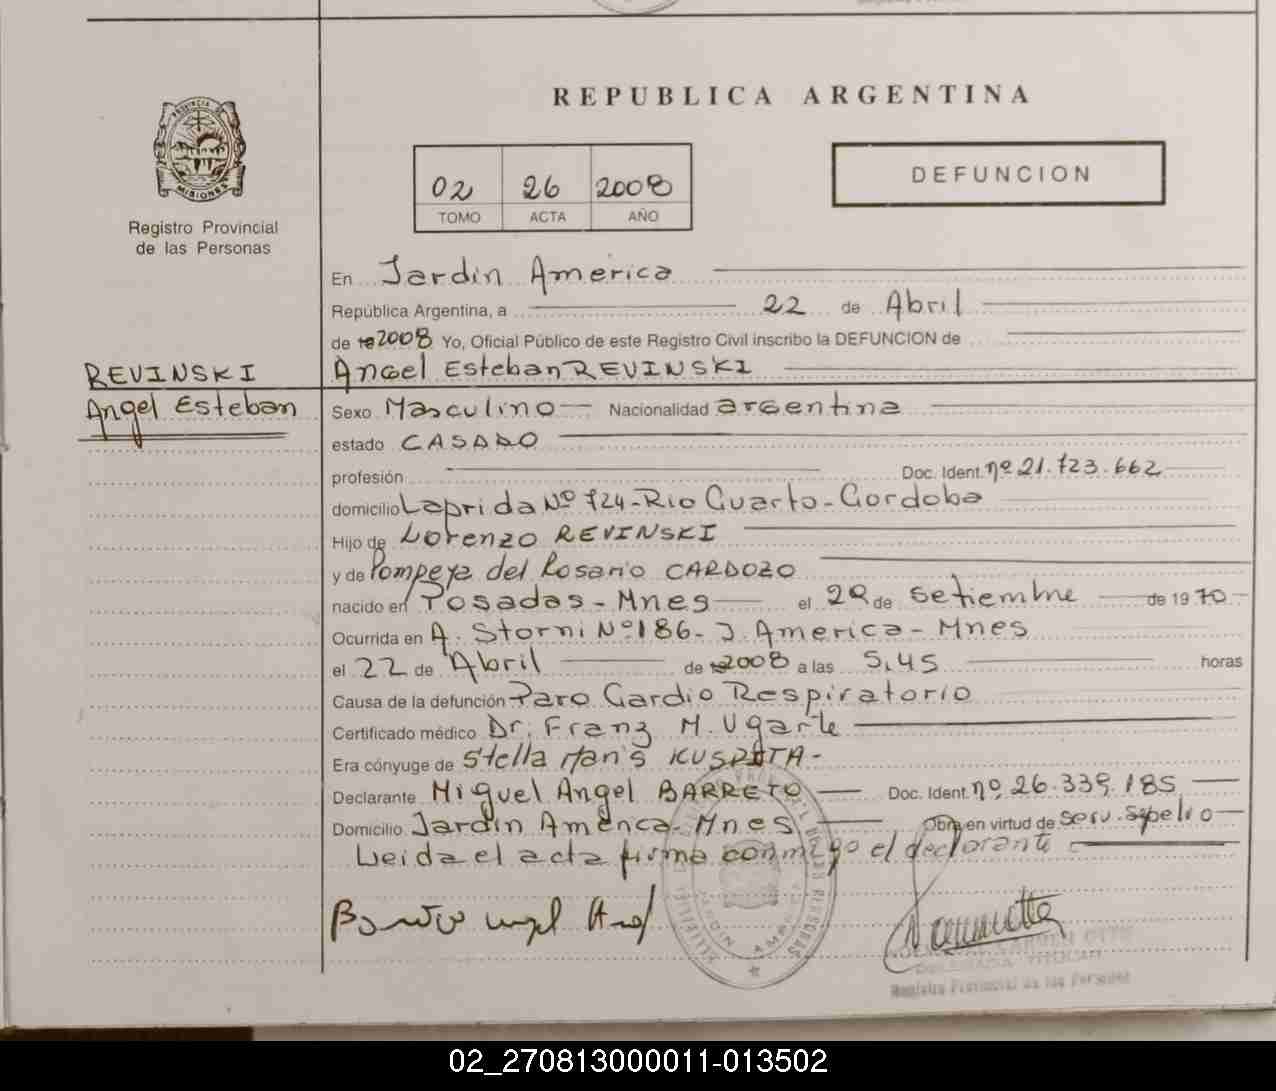 REPUBLICA ARGENTINA
PROVINCIA DE
MISIONES
Registro Provincial
de las Personas
02 26 2008
TOMO ACTA AÑO
DEFUNCION
En Jardin America
República Argentina, a 22 de Abril
de 2008 Yo, Oficial Público de este Registro Civil inscribo la DEFUNCION de
REVINSKI
Angel Esteban
Angel Esteban REVINSKI
Sexo Masculino Nacionalidad argentina
estado CASADO
profesión Doc. Ident. nº 21.723.662
domicilio Laprida Nº 724-Rio Cuarto-Cordoba
Hijo de Lorenzo REVINSKI
y de Pompeya del Rosario CARDOZO
nacido en Posadas-Mnes el de Setiembre de 1970
Ocurrida en A. Storni Nº186-J.America-Mnes
el 22 de Abril de 2008 a las 5,45 horas
Causa de la defunción Paro Cardio Respiratorio
Certificado médico Dr. Franz M. Ugarte
Era cónyuge de Stella Maris
Declarante Miguel Angel BARRETO Doc. Ident. nº, 26.339.185
Domicilio Jardin America-Mnes Obra en virtud de serv. Sepelio
Leida el acta firma conmigo el declarante
Registro Provincial de las Personas
02_270813000011-013502